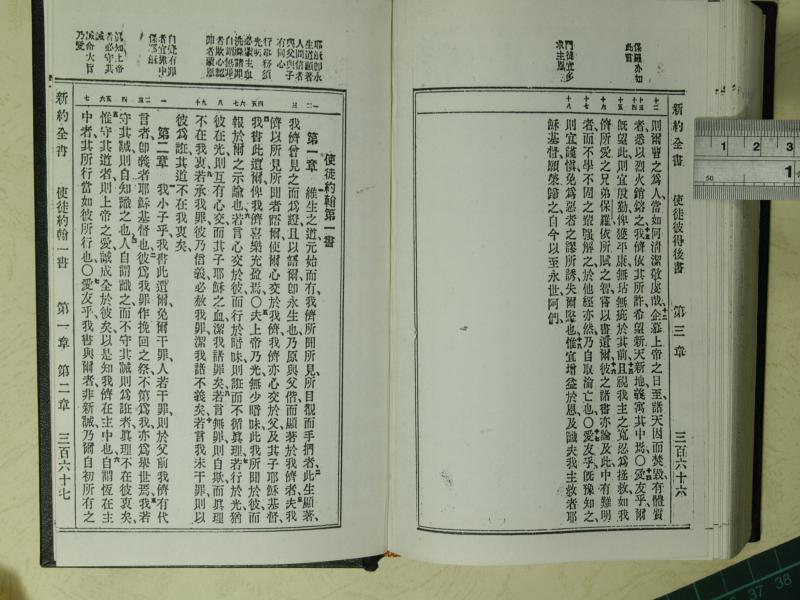 新約全書 使徒彼得後書 第三章 三百六十六
保羅亦如此言
門徒宜多求主恩
則爾曹之爲人當如何清潔敬虔哉、企慕上帝之日至、諸天因而焚毀、有體質
者悉以烈火鎔銘之、我儕依其所許、希望新天新地、義寓其中焉、〇愛友乎、爾
旣望此、則宜殷勤俾獲平康、無玷無疵於其前、且視我主之寬忍爲拯救、如我
儕所愛之兄弟保羅、依所賦之智、嘗以書遺爾、彼之諸書、亦論及此、中有難明
者、而不學不固之輩強解之、於他經亦然、乃自取淪亡也、〇愛友乎、旣豫知之、
則宜謹愼、免爲惡者之謬所誘、失爾堅也、惟宜增益於恩、及識夫我主救者耶
穌基督、願榮歸之、自今以至永世、阿們、
耶穌卽永生道顯著人間信者與父與子有同心
行事務須光明
必賴主血洗滌諸罪
自謂無罪者欺心認罪者蒙恩
自覺有罪者宜賴中保耶穌
識知上帝者必守其誡
誡命大旨乃愛
使徒約翰第一書
第一章 維生之道、元始而有、我儕所聞所見、所目覩而手捫者、此生顯著、
我儕曾見之而爲證、且以語爾、卽永生也、乃原與父偕、而顯著於我儕者、夫我
儕以所見所聞者語爾、使爾心交於我儕、我儕亦心交於父、及其子耶穌基督、
我書此遺爾、俾我儕喜樂充盈焉、〇夫上帝乃光、無少暗昧、此我所聞於彼、而
報於爾之示諭也、若言心交於彼、而行於暗昧、則誑而不循眞理、若行於光、猶
彼在光、則互有心交、而其子耶穌之血、潔我諸罪矣、若言無罪、則自欺、而眞理
不在我衷、若承我罪、彼乃信義、必赦我罪、潔我諸不義矣、若言我未干罪、則以
彼爲誑、其道不在我衷矣、
第二章 我小子乎、我書此遺爾、免爾干罪、人若干罪、則於父前、我儕有代
言者、卽義者耶穌基督也、彼爲我罪作挽回之祭、不第爲我、亦爲舉世焉、我若
守其誡、則自知識之也、人自謂識之、而不守其誡、則爲誑者、眞理不在彼衷矣、
惟守其道者、則上帝之愛、誠成全於彼矣、以是知我儕在主中也、自謂恆在主
中者、其所行當如彼所行也、〇愛友乎、我書與爾者、非新誡、乃爾自初所有之
新約全書 使徒約翰一書 第一章 第二章 三百六十七